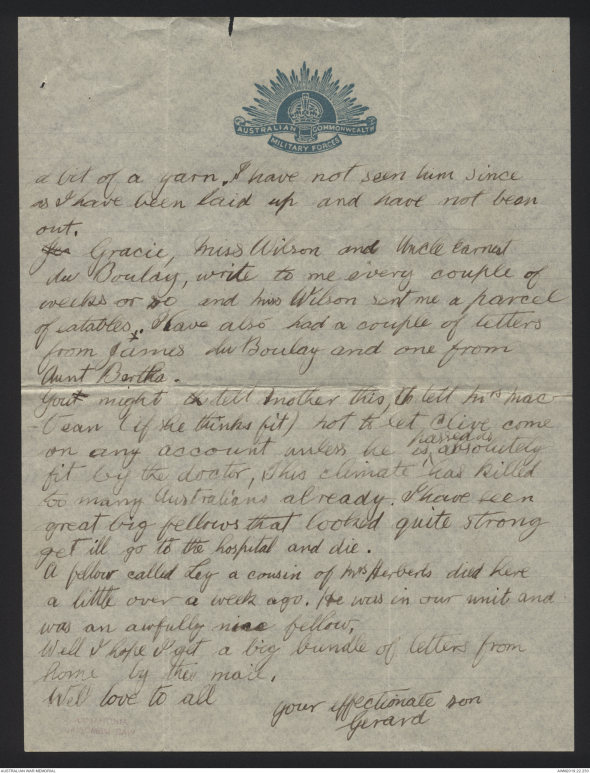 AUSTRALIAN COMMONWEALTH
MILITARY FORCES
a bit of a yarn. I have not seen him since
as I have been laid up and have not been
out.
Gracie, Miss Wilson and Uncle Earnest
du Boulay, write to me every couple of
weeks or so and Miss Wilson sent me a parcel
of eatables. I have also had a couple of letters
from James du Boulay and one from
Aunt Bertha.
You might tell Mother this, to tell Mrs Mac-
-Lean (if she thinks fit) not to let Clive come
on any account unless he is passed as absolutely
fit by the doctor, this climate has killed
to many Australians already. I have seen
great big fellows that looked quite strong
get ill go to the hospital and die.
A fellow called Ley a cousin of Mrs Herberts died here
a little over a week ago. He was in our unit and
was an awfully nice fellow.
Well I hope I get a big bundle of letters from
home by this mail.
Well love to all
your effectionate son
Gerard
AUSTRALIAN WAR MEMORIAL